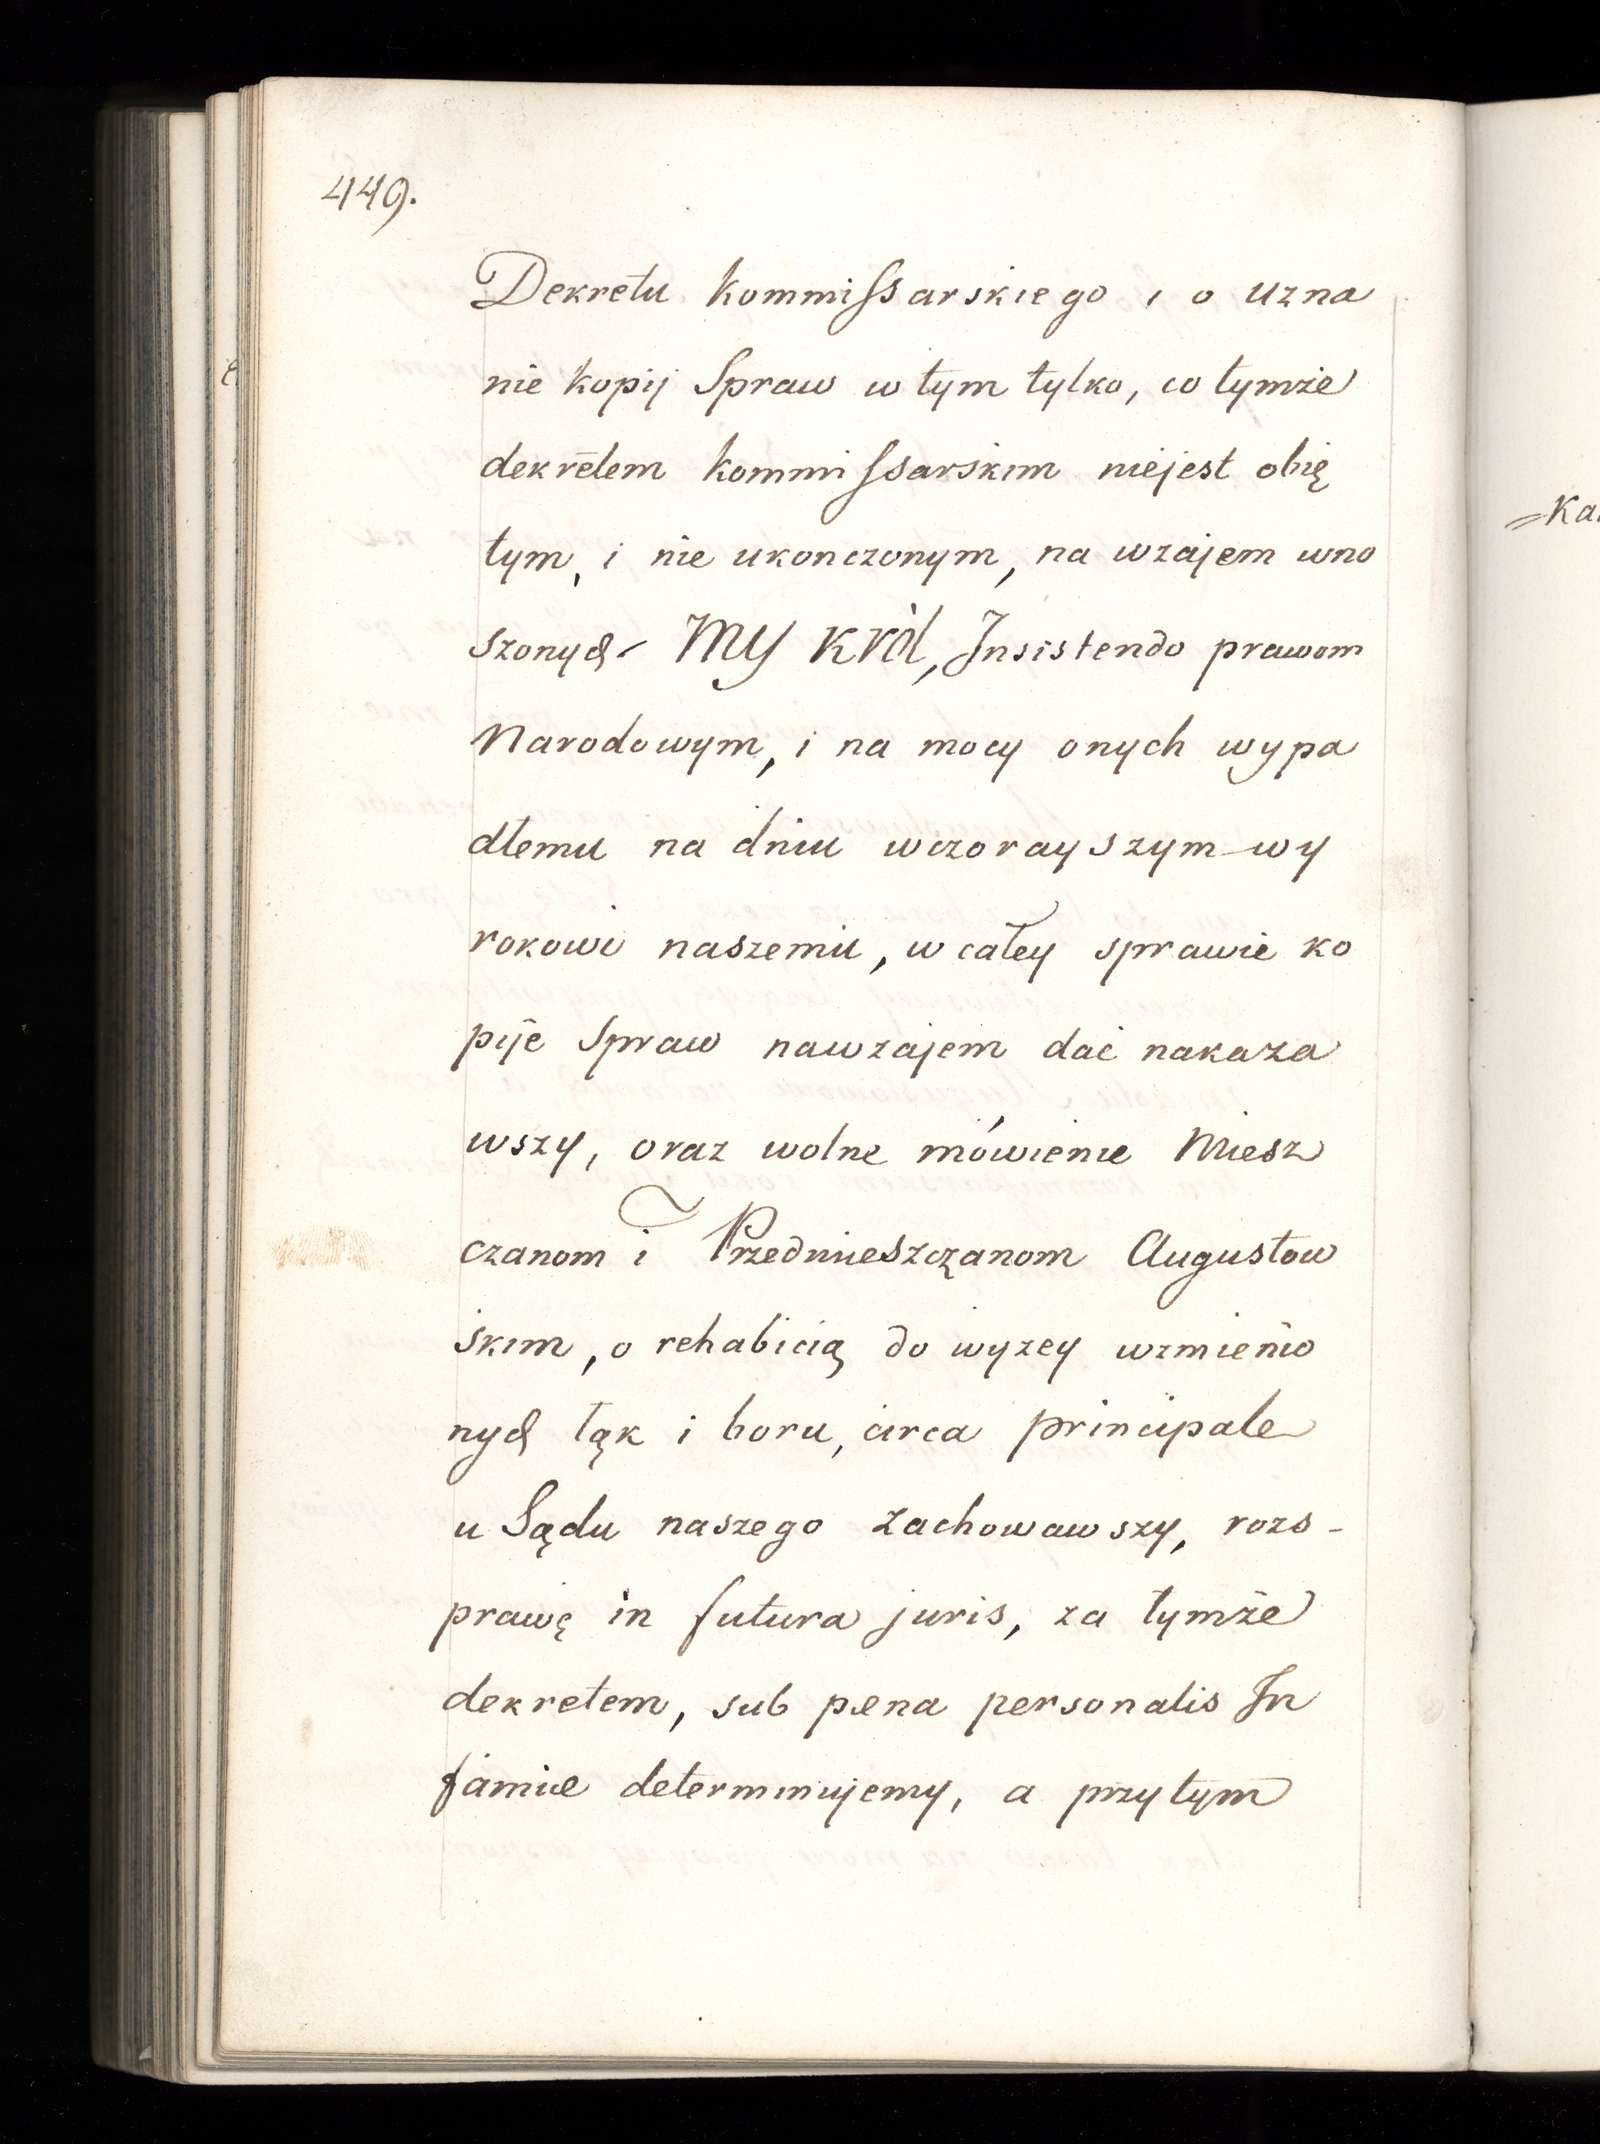 449.
Dekretu kommissarskiego i o uzna
nie kopij Spraw w tym tylko, co tymże
dekretem kommissarskim niejest obię
tym, i nie ukonczonym, na wzajem wno
szonych My Król, Insistendo prawom
Narodowym, i na mocy onych wypa
dłemu na dniu wczorayszym wy
rokowi naszemu, w całey sprawie ko
pije Spraw nawzajem dać nakaza
wszy, oraz wolne mówienie Miesz
czanom i Przedmieszczanom Augustow
skim, o rehabicią do wyzey wzmienio
nych łąk i boru, circa principale
u Sądu naszego zachowawszy, rozs-
prawę in futura juris, za tymże
dekretem, sub pæna personalis In
famiæ determinujemy, a przytym